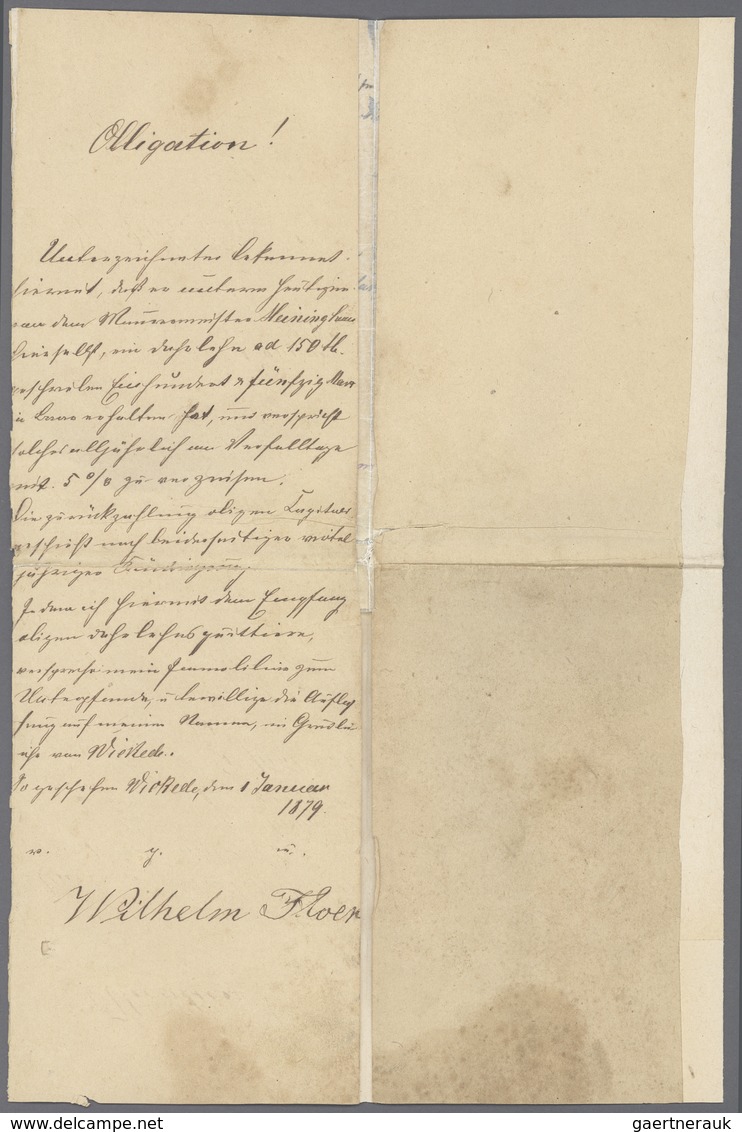 Obligation!
Unterzeichneter bekennet
hiermit, daß er unterm heutigen
von dem Maurermeister Meininghaus
hierselbst, ein Dahrlehn ad 150 M.
geschrieben Einhundert & fünfzig Mark
in baar erhalten hat, und verspricht
solches alljährlich am Verfalltage
mit 5 % zu verzinsen.
Die zurückzahlung obigen Capitals
geschieht nach beiderseitiger viertel
jähriger Kündigung.
In dem ich hiermit dem Empfang
obigen Dahrlehns quittiere,
verspreche mein Immobilien zum
Unterpfande, u bewillige die
auf meinen Namen, im
von Wickede.
So geschehen Wickede, den 1 Januar
1879.
v. g. u.
Wilhelm Floer
gaertnerauk